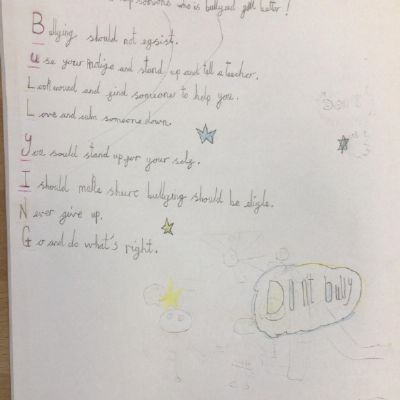 someone who is bullyed get better!
Bullying should not egsist.
use your indige and stand up and tell a teacher.
Look around and find someone to help you.
Love and calm someone down.
you sould stand up for your self.
I should make shure bullying should be eligle.
Never give up.
Go and do what's right.
Dont bully